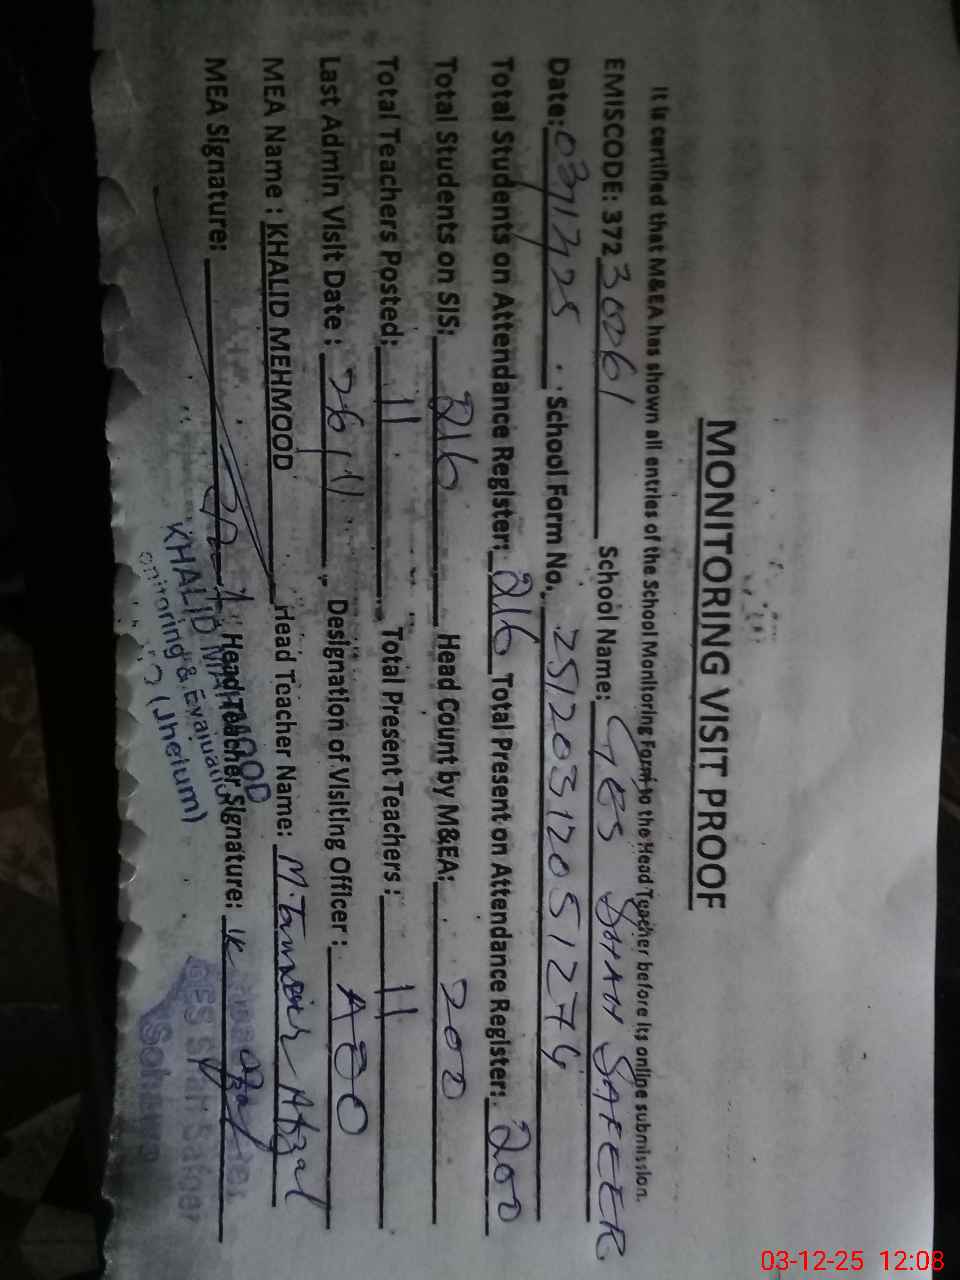 MONITORING VISIT PROOF
It is certified that M&EA has shown all entries of the School Monitoring Form to the Head Teacher before its online submission.
EMISCODE: 37230061 School Name: GES SHAH SAFEER
Date: 03/12/25 School Form No. 25120312051274
Total Students on Attendance Register: 216 Total Present on Attendance Register: 200
Total Students on SIS: 216 Head Count by M&EA: 200
Total Teachers Posted: 11 Total Present Teachers: 11
Last Admin Visit Date: 26/11 Designation of Visiting Officer: AEO
MEA Name: KHALID MEHMOOD Head Teacher Name: M. Afzal
MEA Signature: Head Teacher Signature:
KHALID MAHMOOD
Monitoring & Evaluation
(Jhelum)
GES Shah Safeer
Sohawa
03-12-25 12:08